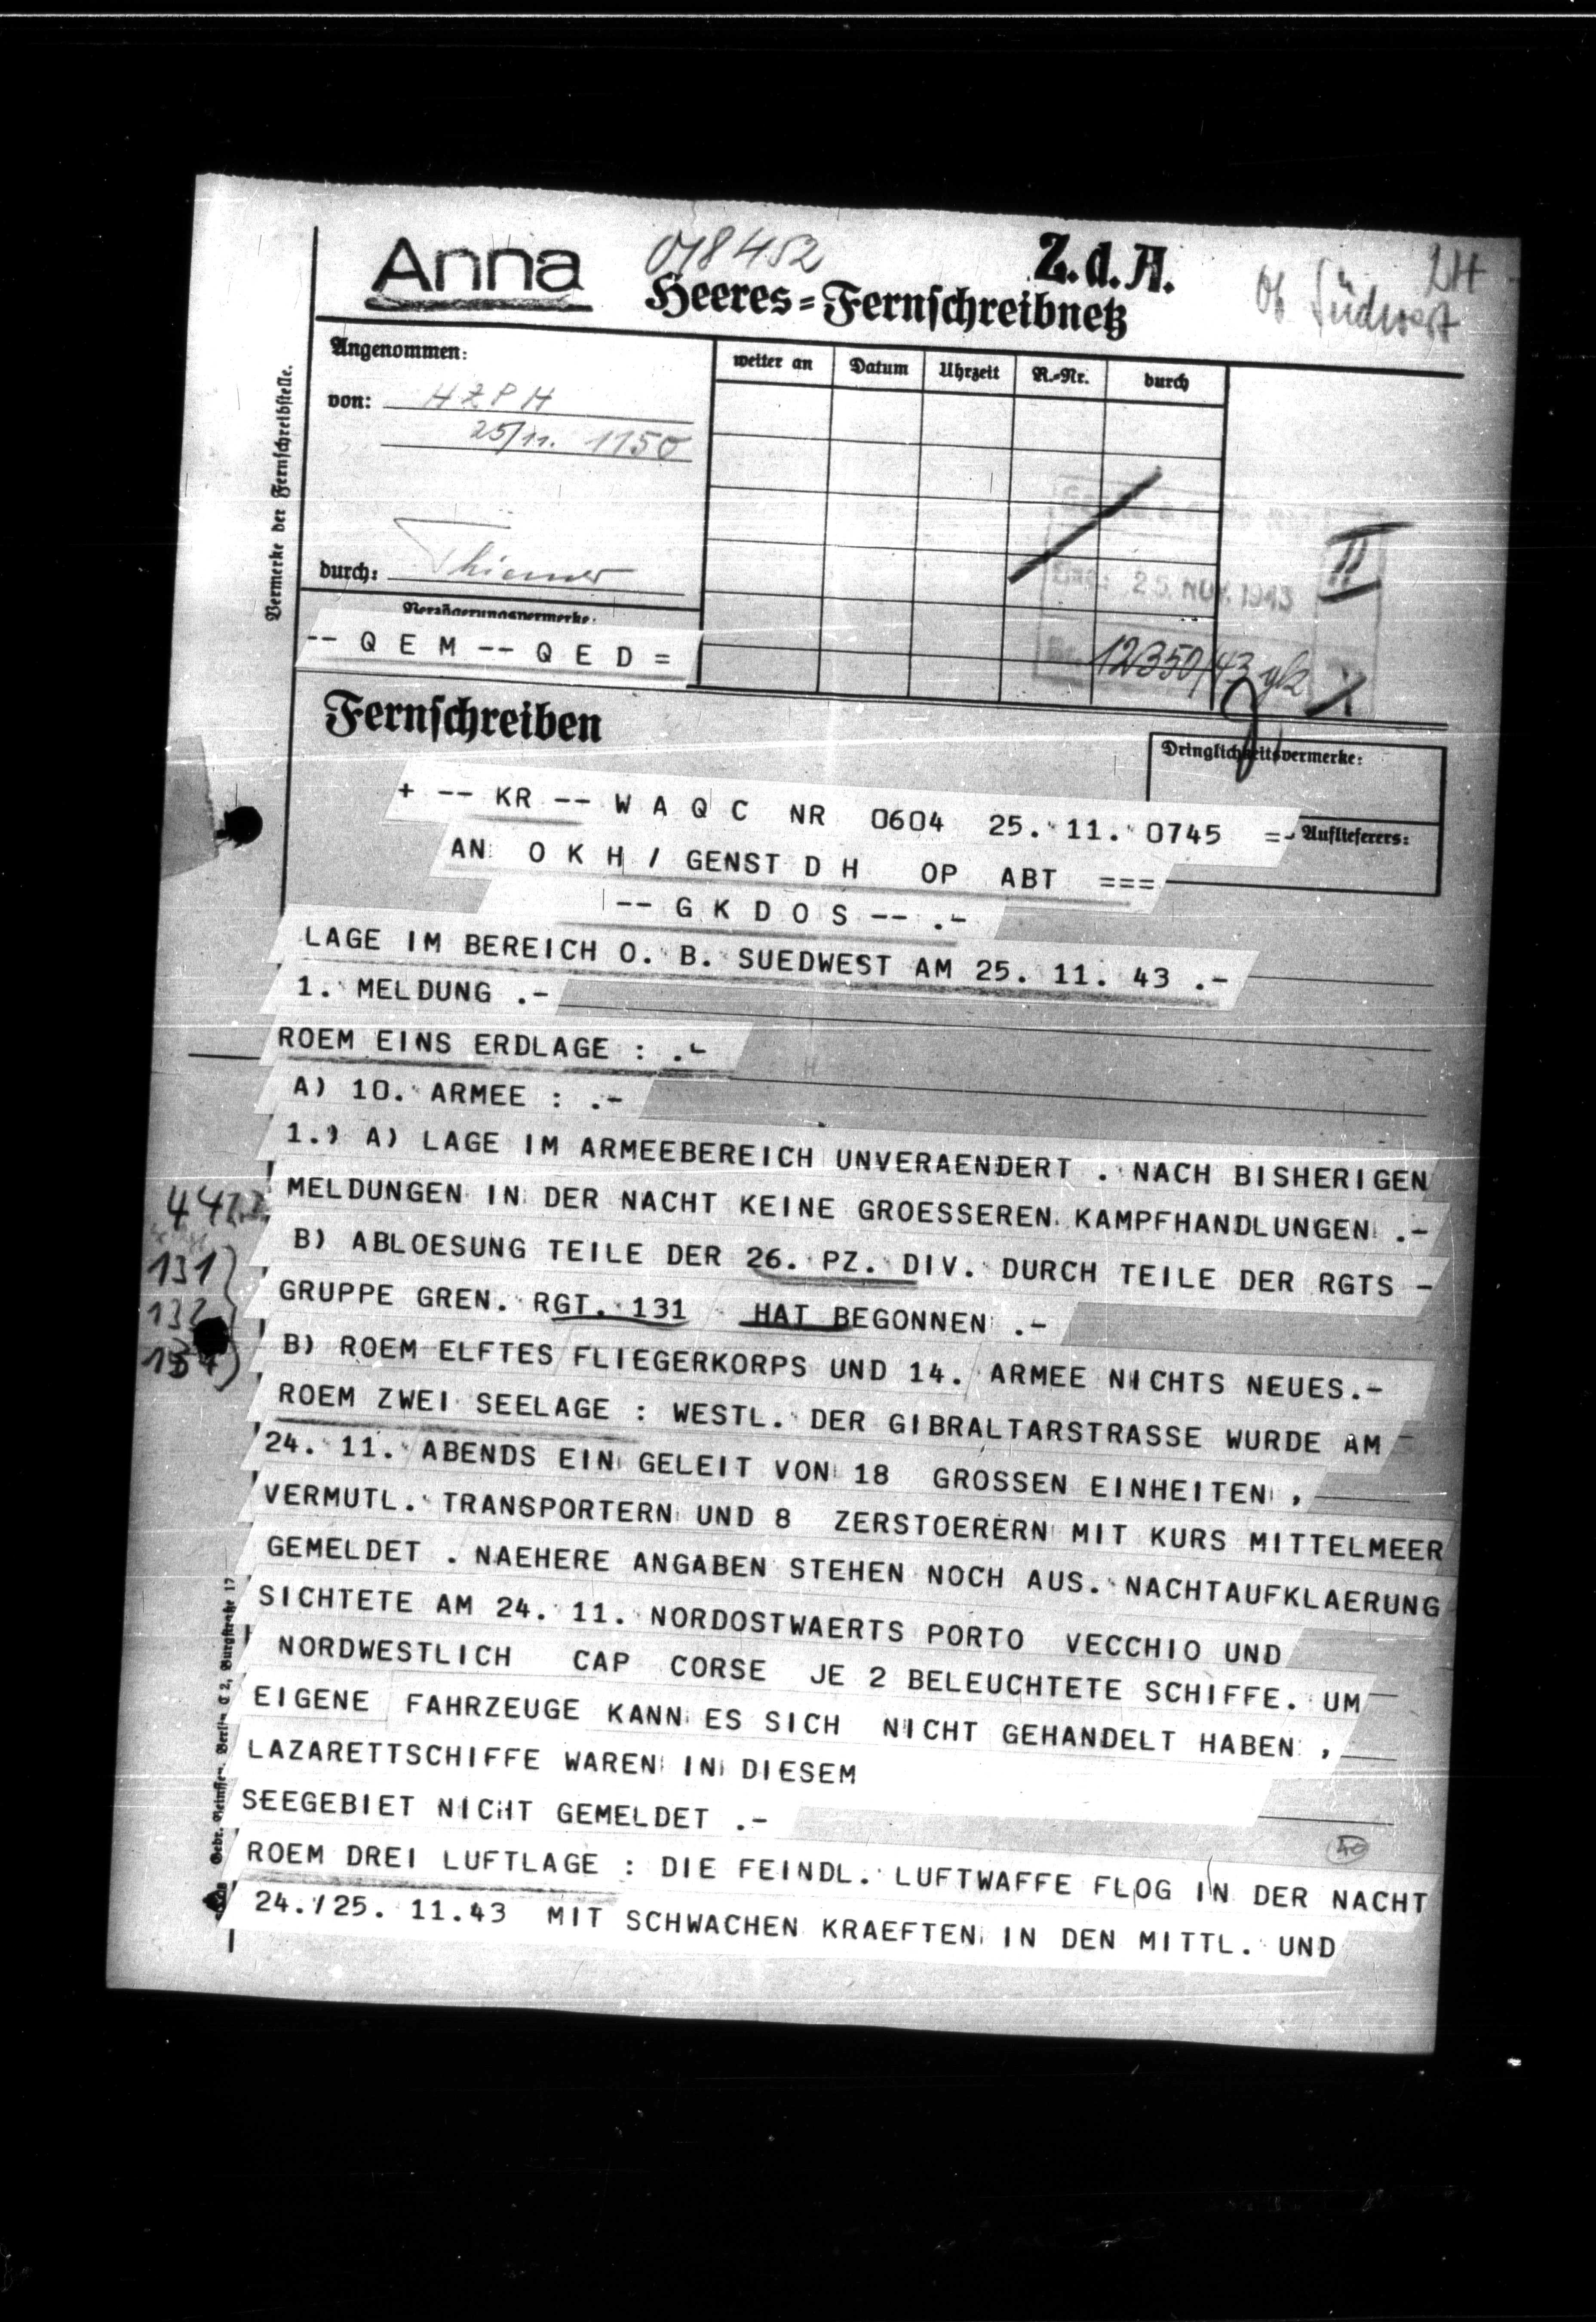 Anna
018452
Z.d.A.
Ob Südwest
Heeres-Fernschreibnetz
Angenommen:
von: HZPH
25/11. 1150
durch:
weiter an Datum Uhrzeit R.-Nr. durch
Vermerke der Fernschreibstelle.
25. NOV. 1943
II
12350/43 gk
Verzögerungsvermerke:
-- Q E M -- Q E D =
Fernschreiben
Dringlichkeitsvermerke:
+ -- KR -- W A Q C NR 0604 25. 11. 0745 =-
Auflieferers:
AN O K H / GENST D H OP ABT ===
-- G K D O S -- .-
LAGE IM BEREICH O. B. SUEDWEST AM 25. 11. 43 .-
1. MELDUNG .-
ROEM EINS ERDLAGE : .-
A) 10. ARMEE : .-
1.) A) LAGE IM ARMEEBEREICH UNVERAENDERT . NACH BISHERIGEN
MELDUNGEN IN DER NACHT KEINE GROESSEREN KAMPFHANDLUNGEN .-
B) ABLOESUNG TEILE DER 26. PZ. DIV. DURCH TEILE DER RGTS -
GRUPPE GREN. RGT. 131 HAT BEGONNEN .-
131
132
B) ROEM ELFTES FLIEGERKORPS UND 14. ARMEE NICHTS NEUES.-
ROEM ZWEI SEELAGE : WESTL. DER GIBRALTARSTRASSE WURDE AM
24. 11. ABENDS EIN GELEIT VON 18 GROSSEN EINHEITEN ,
VERMUTL. TRANSPORTERN UND 8 ZERSTOERERN MIT KURS MITTELMEER
GEMELDET . NAEHERE ANGABEN STEHEN NOCH AUS. NACHTAUFKLAERUNG
SICHTETE AM 24. 11. NORDOSTWAERTS PORTO VECCHIO UND
NORDWESTLICH CAP CORSE JE 2 BELEUCHTETE SCHIFFE. UM
EIGENE FAHRZEUGE KANN ES SICH NICHT GEHANDELT HABEN ,
LAZARETTSCHIFFE WAREN IN DIESEM
SEEGEBIET NICHT GEMELDET .-
40
ROEM DREI LUFTLAGE : DIE FEINDL. LUFTWAFFE FLOG IN DER NACHT
24./25. 11.43 MIT SCHWACHEN KRAEFTEN IN DEN MITTL. UND
Berlin C 2, Burgstraße 17